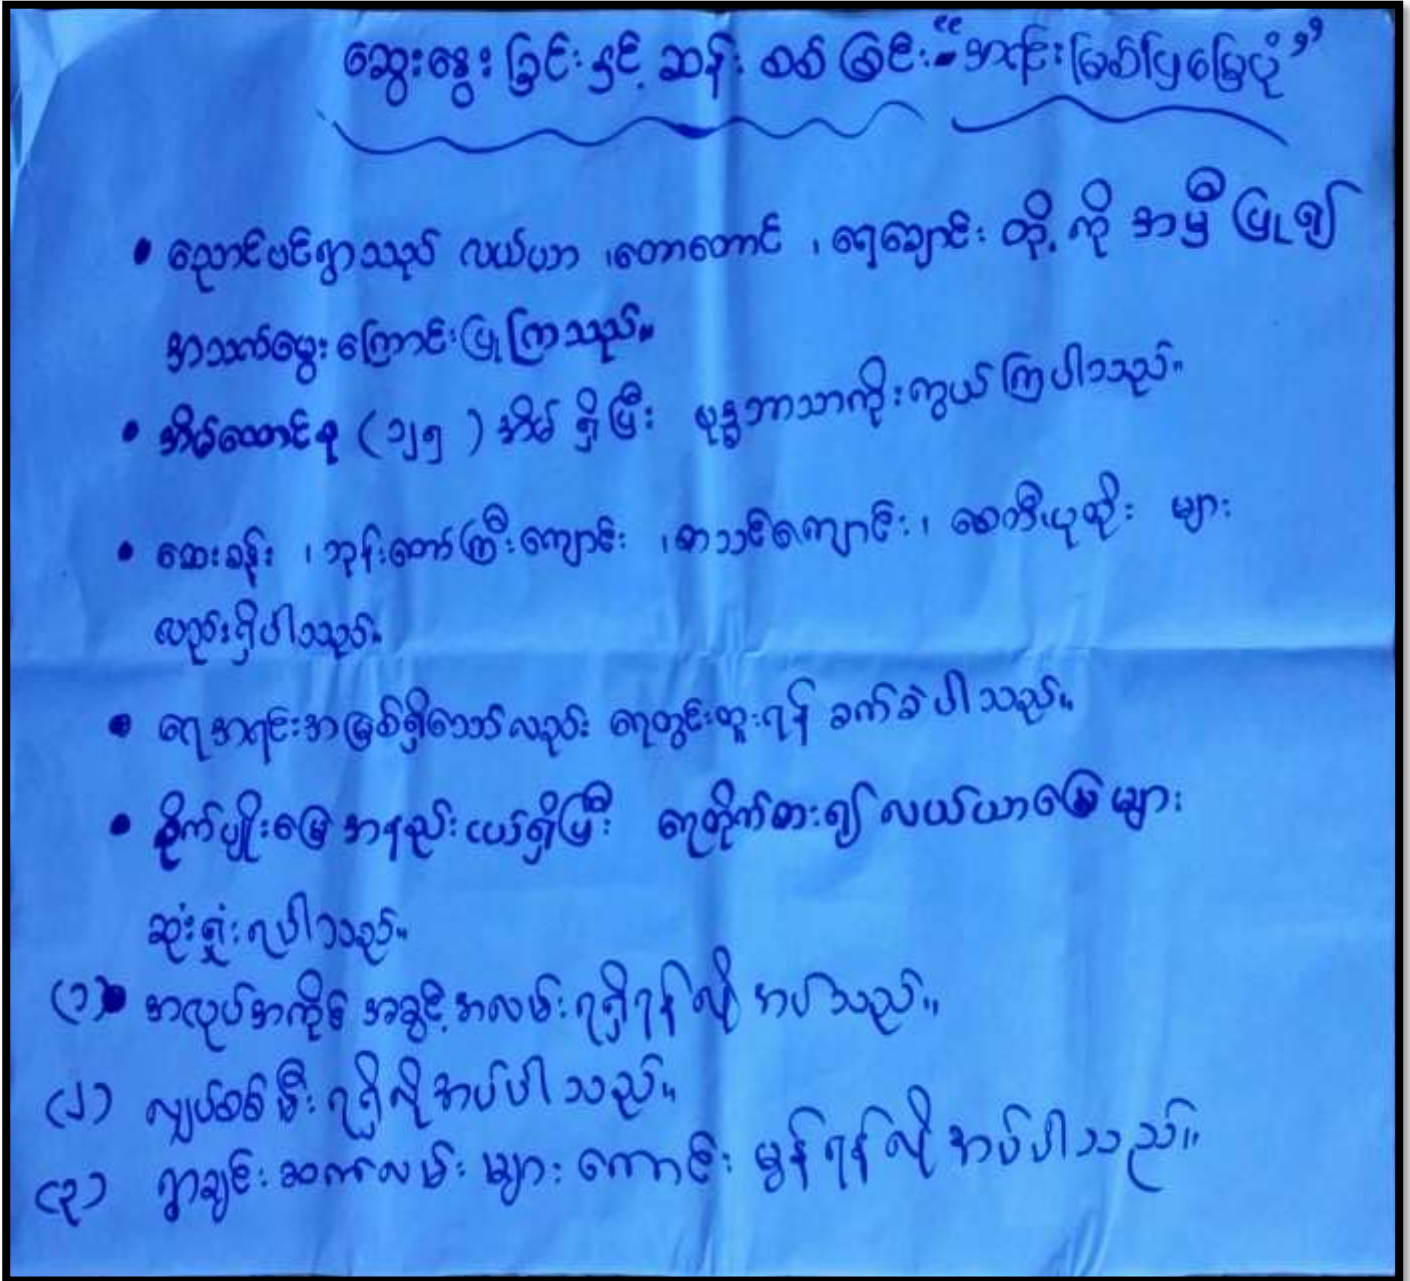 ဆွေးနွေးခြင်းနှင့် ဆန်းစစ်ခြင်း "အရင်းမြစ်ပြမြေပုံ"
• ညောင်ပင်ရွာသည် လယ်ယာ ၊တောတောင် ၊ ရေချောင်း တို့ ကို အမှီ ပြု၍
အသက်မွေးကြောင်းပြုကြသည်။
• အိမ်ထောင်စု (၁၂၅ ) အိမ် ရှိပြီး ဗုဒ္ဓဘာသာကိုးကွယ်ကြပါသည်။
• ဆေးခန်း ၊ ဘုန်းတော်ကြီးကျောင်း ၊စာသင်ကျောင်း ၊ စေတီပုထိုး များ
လည်းရှိပါသည်။
• ရေအရင်းအမြစ်ရှိသော်လည်း ရေတွင်းတူးရန် ခက်ခဲပါသည်။
• စိုက်ပျိုးမြေအနည်းငယ်ရှိပြီး ရေတိုက်စား၍ လယ်ယာမြေများ
ဆုံးရှုံးရပါသည်။
(၁)• အလုပ်အကိုင် အခွင့်အလမ်းရရှိရန် လို အပ်သည်။
(၂) လျှပ်စစ်မီးရရှိလိုအပ်ပါသည်။
(၃) ရွာချင်းဆက်လမ်းများ ကောင်းမွန်ရန်လိုအပ်ပါသည်။